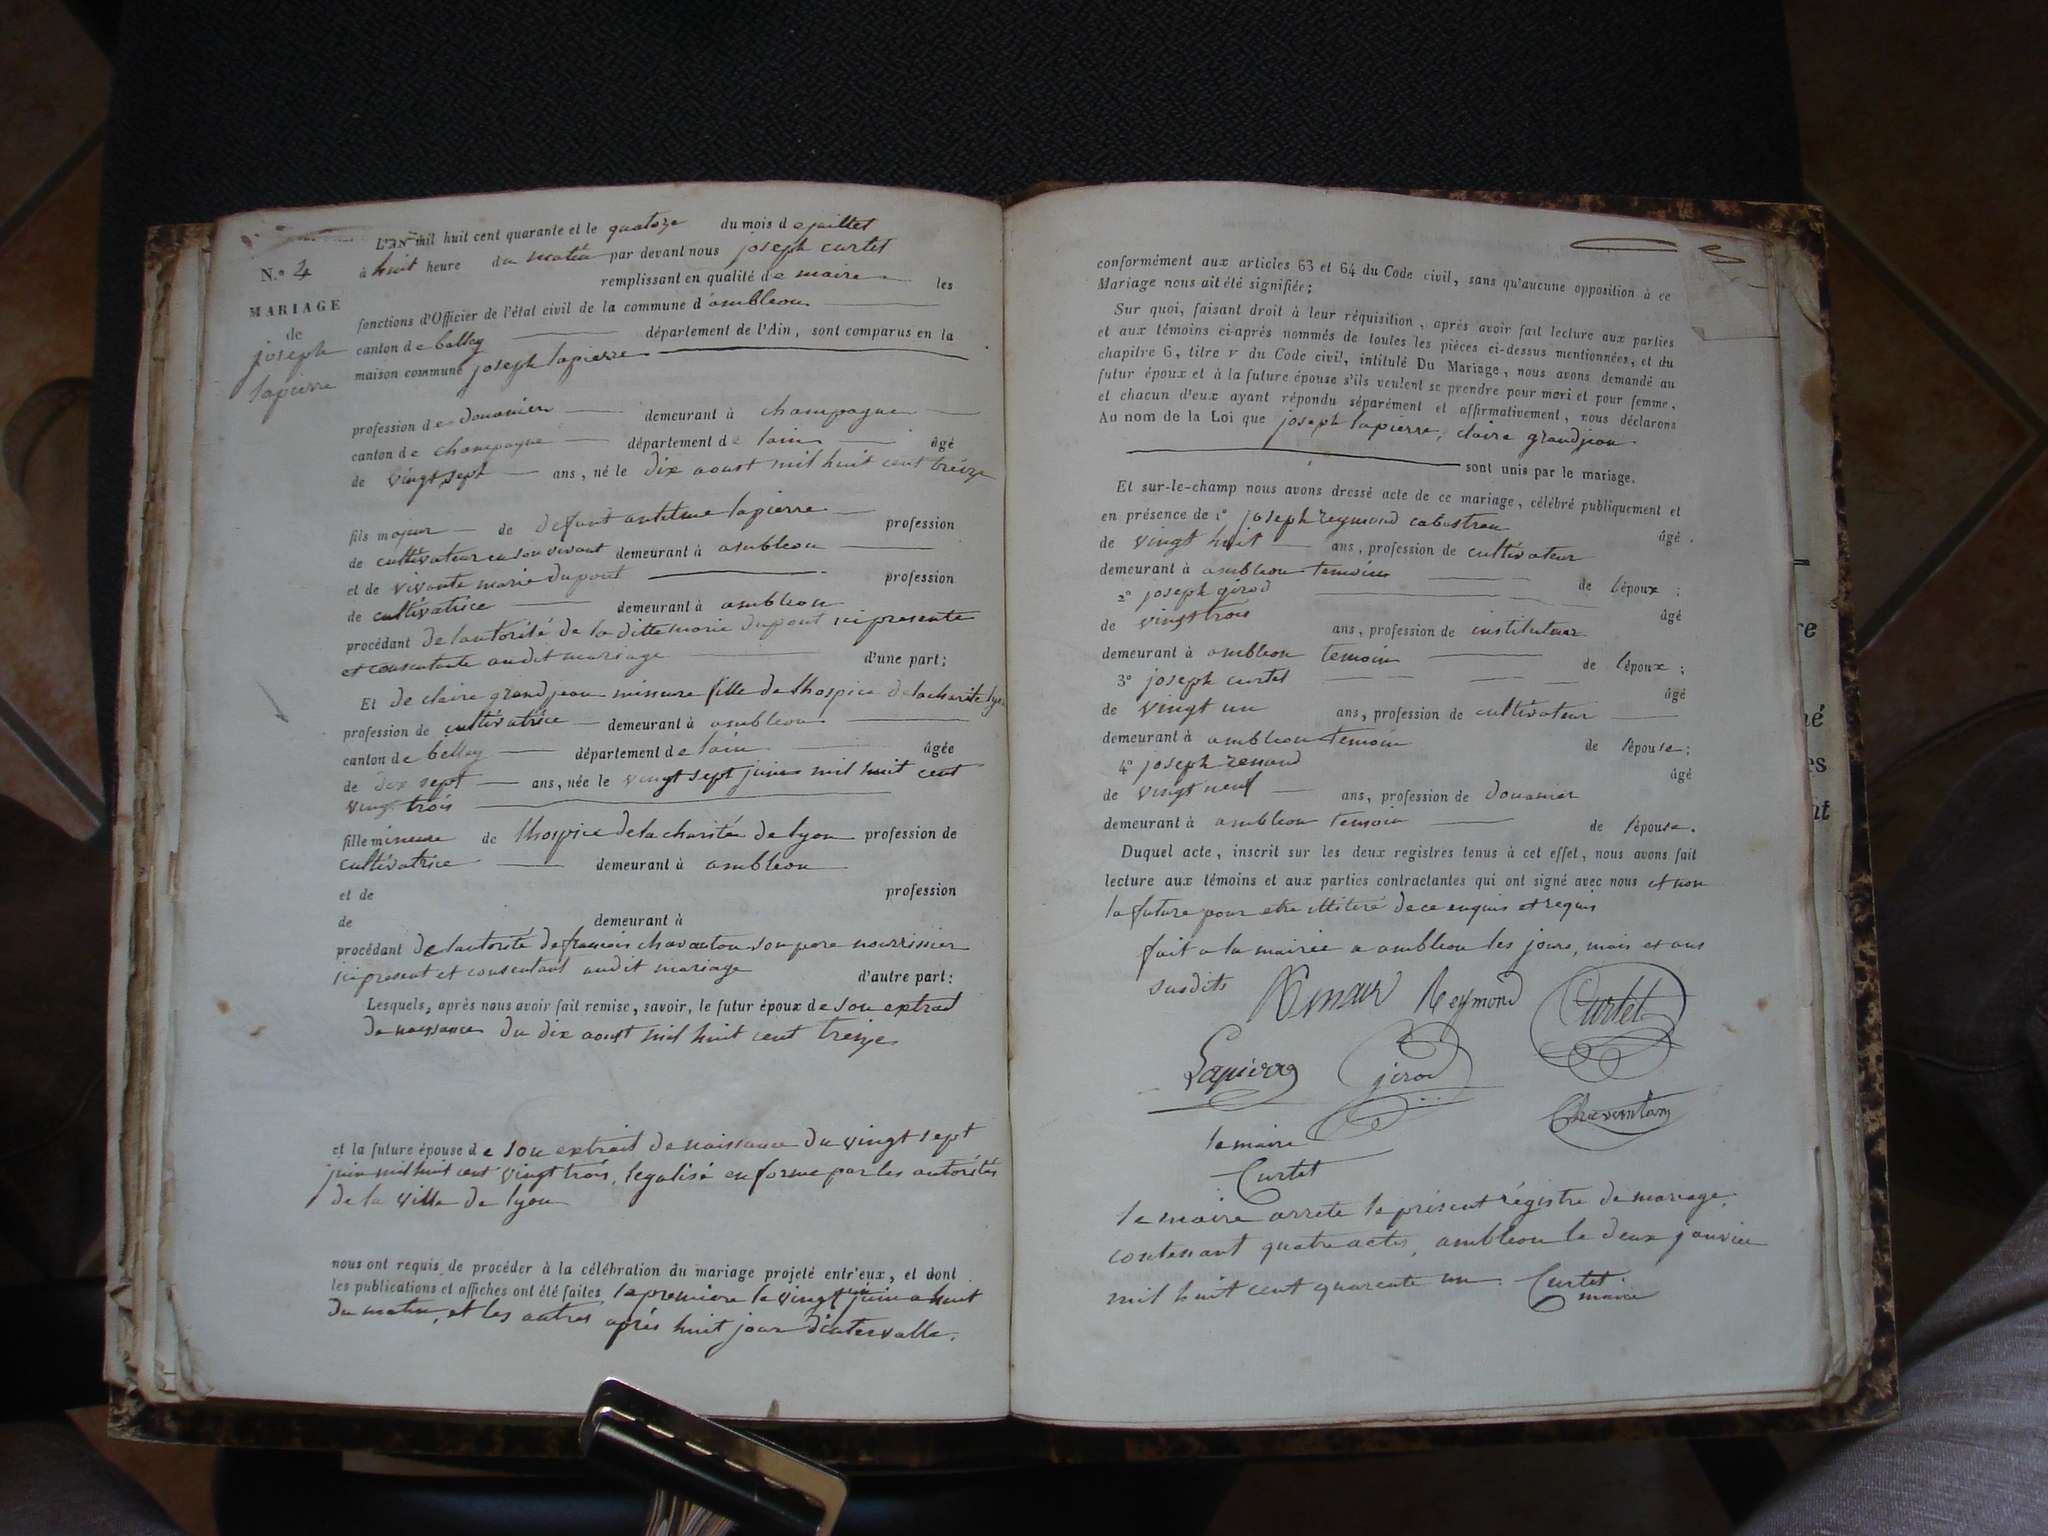 L'AN mil huit cent quarante et le quatorze du mois de juillet
N.° 4
à huit heure du matin par devant nous joseph curtet
remplissant en qualité de maire les
MARIAGE
fonctions d'Officier de l'état civil de la commune d'ambleon
de
canton de belley département de l'Ain, sont comparus en la
joseph
maison commune joseph lapierre
lapierre
profession de douanier demeurant à champagne
canton de champagne département de lain âgé
de vingt sept ans, né le dix aoust mil huit cent treize
fils majeur de defunt antelme lapierre profession
de cultivateur en son vivant demeurant à ambleon
et de vivante marie dupont profession
de cultivatrice demeurant à ambleon
procédant de lautorité de la ditte marie dupont ici presente
et consentante audit mariage d'une part;
Et de claire grandjean mineure fille de lhospice de la charité lyon
profession de cultivatrice demeurant à ambleon
canton de belley département de lain âgée
de dix sept ans, née le vingt sept juin mil huit cent
vingt trois
fille mineure de lhospice de la charitée de lyon profession de
cultivatrice demeurant à ambleon
et de profession
de demeurant à
procédant de lautorité de francois chavanton son pere nourrissier
ici present et consentant audit mariage d'autre part:
Lesquels, après nous avoir fait remise, savoir, le futur époux de son extrait
de naissance du dix aoust mil huit cent treize
et la future épouse de son extrait de naissance du vingt sept
juin mil huit cent vingt trois, legalisé en forme par les autorités
de la ville de lyon
nous ont requis de procéder à la célébration du mariage projeté entr'eux, et dont
les publications et affiches ont été faites la premiere le vingt un juin a huit
du matin, et les autres après huit jour d'intervalle.
conformément aux articles 63 et 64 du Code civil, sans qu'aucune opposition à ce
Mariage nous ait été signifiée;
Sur quoi, faisant droit à leur réquisition, après avoir fait lecture aux parties
et aux témoins ci-après nommés de toutes les pièces ci-dessus mentionnées, et du
chapitre 6, titre v du Code civil, intitulé Du Mariage, nous avons demandé au
futur époux et à la future épouse s'ils veulent se prendre pour mari et pour femme,
et chacun d'eux ayant répondu séparément et affirmativement, nous déclarons
Au nom de la Loi que joseph lapierre, claire grandjean
sont unis par le mariage.
Et sur-le-champ nous avons dressé acte de ce mariage, célébré publiquement et
en présence de 1° joseph reymond cabostran âgé
de vingt huit ans, profession de cultivateur
demeurant à ambleon temoins de lépoux;
2° joseph girod âgé
de vingt trois ans, profession de instituteur
demeurant à ambleon temoin de lépoux;
3° joseph curtet âgé
de vingt un ans, profession de cultivateur
demeurant à ambleon temoin de lépouse;
4° joseph renaud âgé
de vingt neuf ans, profession de douanier
demeurant à ambleon temoin de lépouse.
Duquel acte, inscrit sur les deux registres tenus à cet effet, nous avons fait
lecture aux témoins et aux parties contractantes qui ont signé avec nous et non
la future pour etre illiteré de ce enquis et requis
fait a la mairie a ambleon les jours, mois et ans
susdits Reymond Curtet
Lapierre girod
Chavantom
le maire
Curtet
le maire arrete le présent régistre de mariage
contenant quatre actes, ambleon le deux janvier
mil huit cent quarante un Curtet
maire